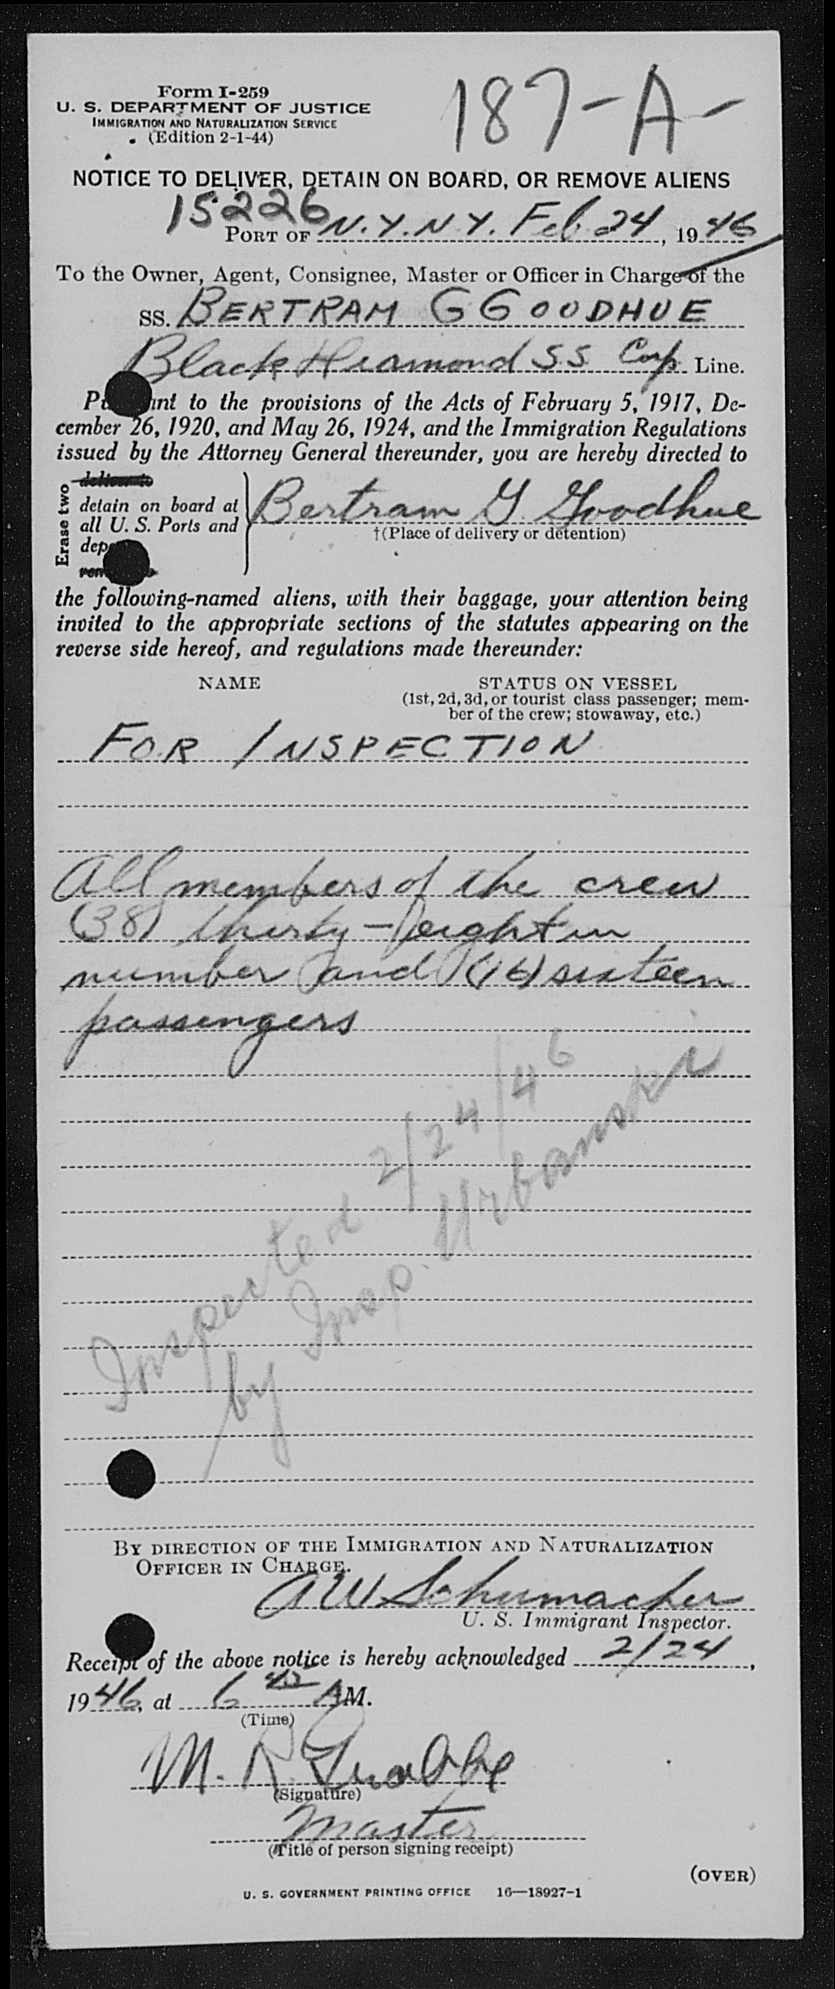 Form I-259
U. S. DEPARTMENT OF JUSTICE
IMMIGRATION AND NATURALIZATION SERVICE
(Edition 2-1-44)
187-A-
NOTICE TO DELIVER, DETAIN ON BOARD, OR REMOVE ALIENS
15226
PORT OF N.Y. N.Y. Feb 24, 1946
To the Owner, Agent, Consignee, Master or Officer in Charge of the
SS. BERTRAM G GOODHUE
Black Diamond SS Corp. Line.
Pursuant to the provisions of the Acts of February 5, 1917, De-
cember 26, 1920, and May 26, 1924, and the Immigration Regulations
issued by the Attorney General thereunder, you are hereby directed to
Erase two
deliver to
detain on board at
all U. S. Ports and
Bertram G. Goodhue
†(Place of delivery or detention)
the following-named aliens, with their baggage, your attention being
invited to the appropriate sections of the statutes appearing on the
reverse side hereof, and regulations made thereunder:
NAME STATUS ON VESSEL
(1st, 2d, 3d, or tourist class passenger; mem-
ber of the crew; stowaway, etc.)
FOR INSPECTION
All members of the crew
(38) thirty-eight in
number and (16) sixteen
passengers
Inspected 2/24/46
by Insp. Urbanski
BY DIRECTION OF THE IMMIGRATION AND NATURALIZATION
OFFICER IN CHARGE.
AW Schumacher
U. S. Immigrant Inspector.
Receipt of the above notice is hereby acknowledged 2/24,
1946, at 6 AM.
(Time)
M. R.
(Signature)
Master
(Title of person signing receipt)
(OVER)
U. S. GOVERNMENT PRINTING OFFICE 16—18927-1